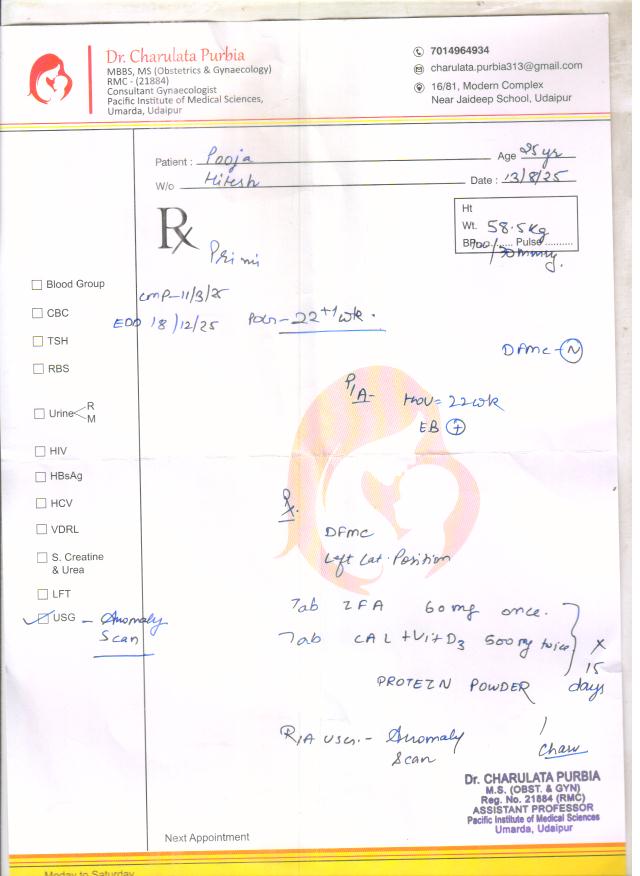 Dr. Charulata Purbia
MBBS, MS (Obstetrics & Gynaecology)
RMC - (21884)
Consultant Gynaecologist
Pacific Institute of Medical Sciences,
Umarda, Udaipur
7014964934
charulata.purbia313@gmail.com
16/81, Modern Complex
Near Jaideep School, Udaipur
Patient : Pooja Age 25 yr
W/o Hitesh Date : 13/8/25
Rx
Ht
Wt. 58.5 kg
BP 100/70 mmHg. Pulse
Primi
LMP - 11/3/25
EDD 18/12/25 POG - 22+1 wk.
DFMC - N
P/A -
22 wk
EB +
Blood Group
CBC
TSH
RBS
Urine R
M
HIV
HBsAg
HCV
VDRL
S. Creatine
& Urea
LFT
USG - Anomaly
Scan
Rx
DFMC
Left Lat. Position
Tab IFA 60 mg once.
Tab CAL + Vit D3 500 mg twice
PROTEIN POWDER
x 15 days
R/A USG - Anomaly
Scan
Charu
Dr. CHARULATA PURBIA
M.S. (OBST. & GYN)
Reg. No. 21884 (RMC)
ASSISTANT PROFESSOR
Pacific Institute of Medical Sciences
Umarda, Udaipur
Next Appointment